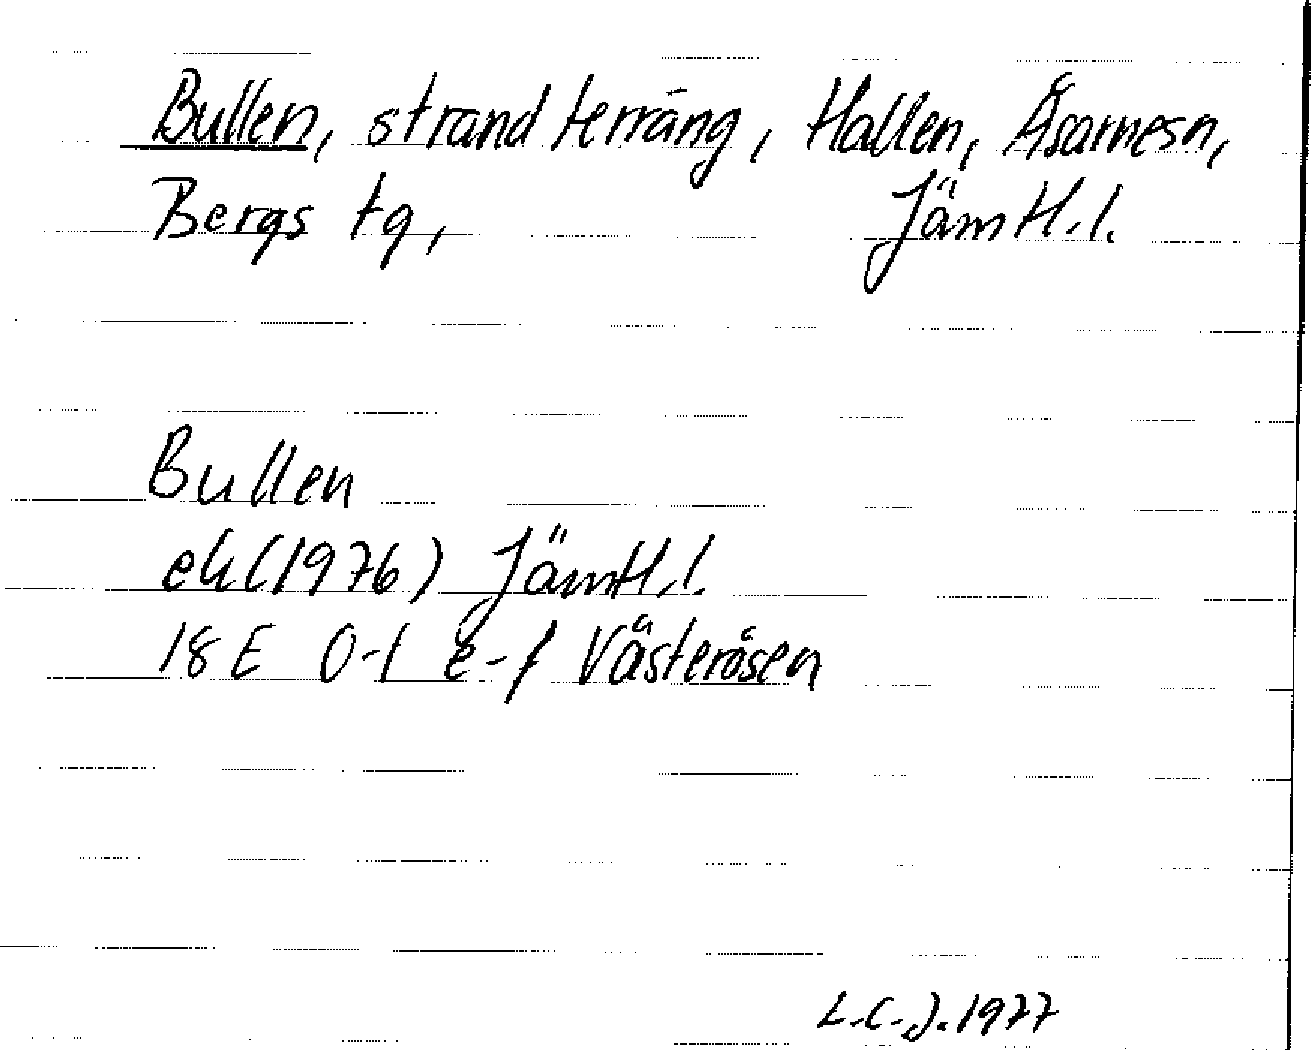 Bullen, strandterräng, Hallen, Åsarnesn,
Bergs tg, Jämtl.l.
Bullen
ek (1976) Jämtl.l.
18E 0-1 e-f Västeråsen
L.C.J. 1977